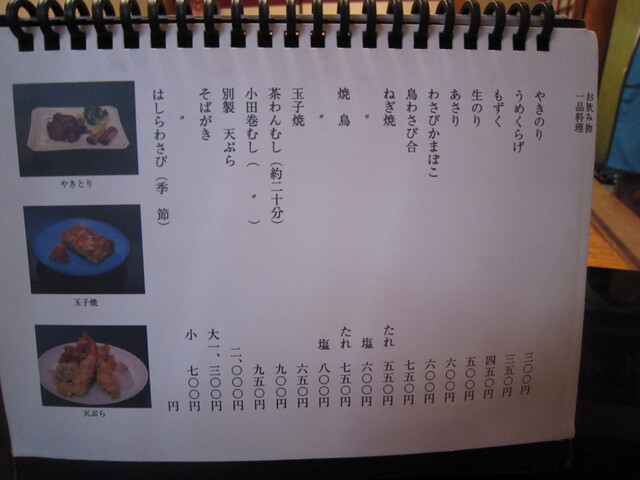 お飲み物
一品料理
やきのり 三〇〇円
うめくらげ 三五〇円
もずく 四五〇円
生のり 五〇〇円
あさり 六〇〇円
わさびかまぼこ 六〇〇円
鳥わさび合 七五〇円
ねぎ焼 たれ 五五〇円
〃 塩 六〇〇円
焼鳥 たれ 七五〇円
〃 塩 八〇〇円
玉子焼 六五〇円
茶わんむし（約二十分） 九〇〇円
小田巻むし（ 〃 ） 九五〇円
別製 天ぷら 二、〇〇〇円
そばがき 大一、三〇〇円
〃 小 七〇〇円
はしらわさび（季 節） 円
やきとり
玉子焼
天ぷら